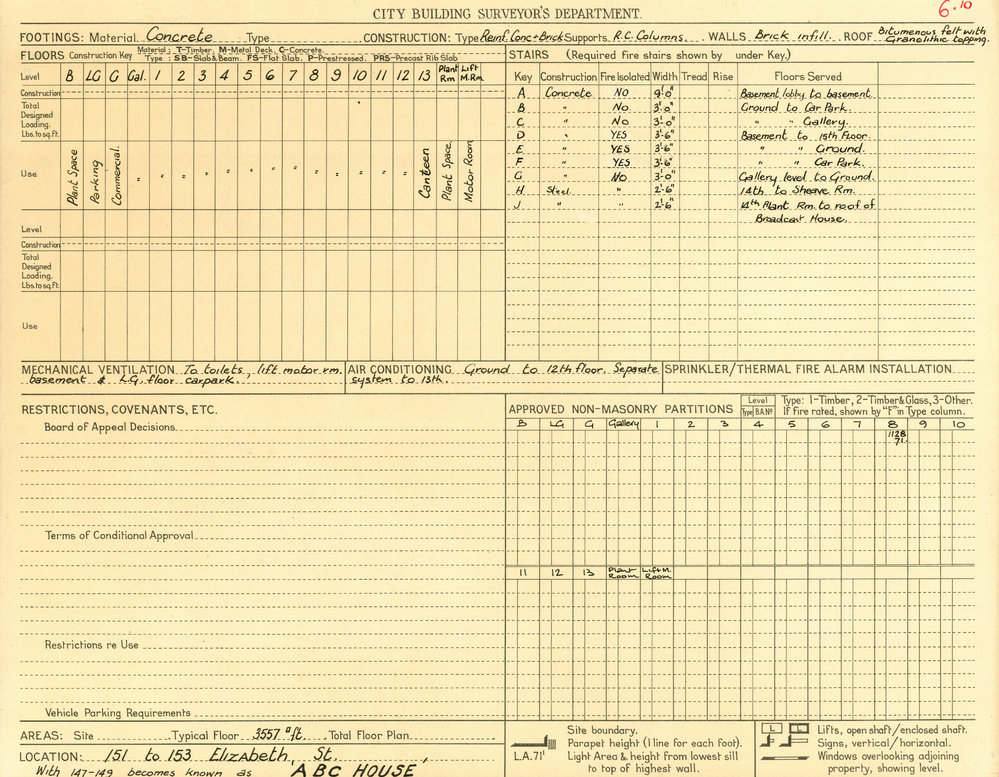 CITY BUILDING SURVEYOR'S DEPARTMENT.
6.10
FOOTINGS: Material Concrete Type CONSTRUCTION: Type Reinf. Conc + Brick Supports R.C. Columns. WALLS Brick infill. ROOF Bitumenous felt with Granolithic topping.
FLOORS Construction Key Material: T-Timber. M-Metal Deck. C-Concrete.
Type: SB-Slab & Beam. FS-Flat Slab. P-Prestressed. PRS-Precast Rib Slab
Level B LG G Gal. 1 2 3 4 5 6 7 8 9 10 11 12 13 Plant Rm Lift M.Rm.
Construction
Total
Designed
Loading.
Lbs. to sq. ft.
Use Plant Space Parking Commercial. " " " " " " " " " " " " " Canteen Plant Space. Motor Room
Level
Construction
Total
Designed
Loading.
Lbs. to sq. ft.
Use
STAIRS (Required fire stairs shown by under Key.)
Key Construction Fire Isolated Width Tread Rise Floors Served
A Concrete NO 9'.0" Basement lobby to basement.
B " No. 3'.0" Ground to Car Park.
C " No 3'.0" " " Gallery.
D " YES 3'.6" Basement to 15th Floor.
E " YES 3'.6" " " Ground.
F " YES 3'.6" " " Car Park.
G " NO 3'.0" Gallery level to Ground.
H Steel " 2'.6" 14th to Sheave Rm.
J " " 2'.6" 14th Plant Rm. to roof of
Broadcast House.
MECHANICAL VENTILATION To toilets, lift motor rm.
basement & L.G. floor carpark.
AIR CONDITIONING Ground to 12th floor. Separate
system to 13th.
SPRINKLER/THERMAL FIRE ALARM INSTALLATION
RESTRICTIONS, COVENANTS, ETC.
Board of Appeal Decisions.
Terms of Conditional Approval
Restrictions re Use
Vehicle Parking Requirements
APPROVED NON-MASONRY PARTITIONS Level Type B.A.No Type: 1-Timber, 2-Timber & Glass, 3-Other.
If fire rated, shown by "F" in Type column.
B LG G Gallery 1 2 3 4 5 6 7 8 9 10
1128
71.
11 12 13 Plant Room Lift M. Room
AREAS: Site Typical Floor 3557 □ft. Total Floor Plan
LOCATION: 151 to 153 Elizabeth, St.,
With 147-149 becomes known as ABC HOUSE
Site boundary.
Parapet height (1 line for each foot).
L.A. 71' Light Area & height from lowest sill
to top of highest wall.
L L Lifts, open shaft/enclosed shaft.
Signs, vertical/horizontal.
Windows overlooking adjoining
property, showing level.